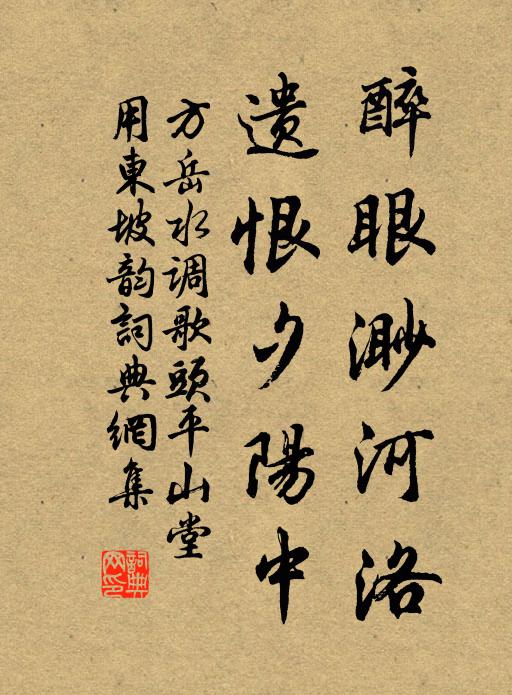 醉眼渺河洛
遗恨夕陽中
方岳水调歌頭平山堂
用東坡韵詞典網集
詞典網印